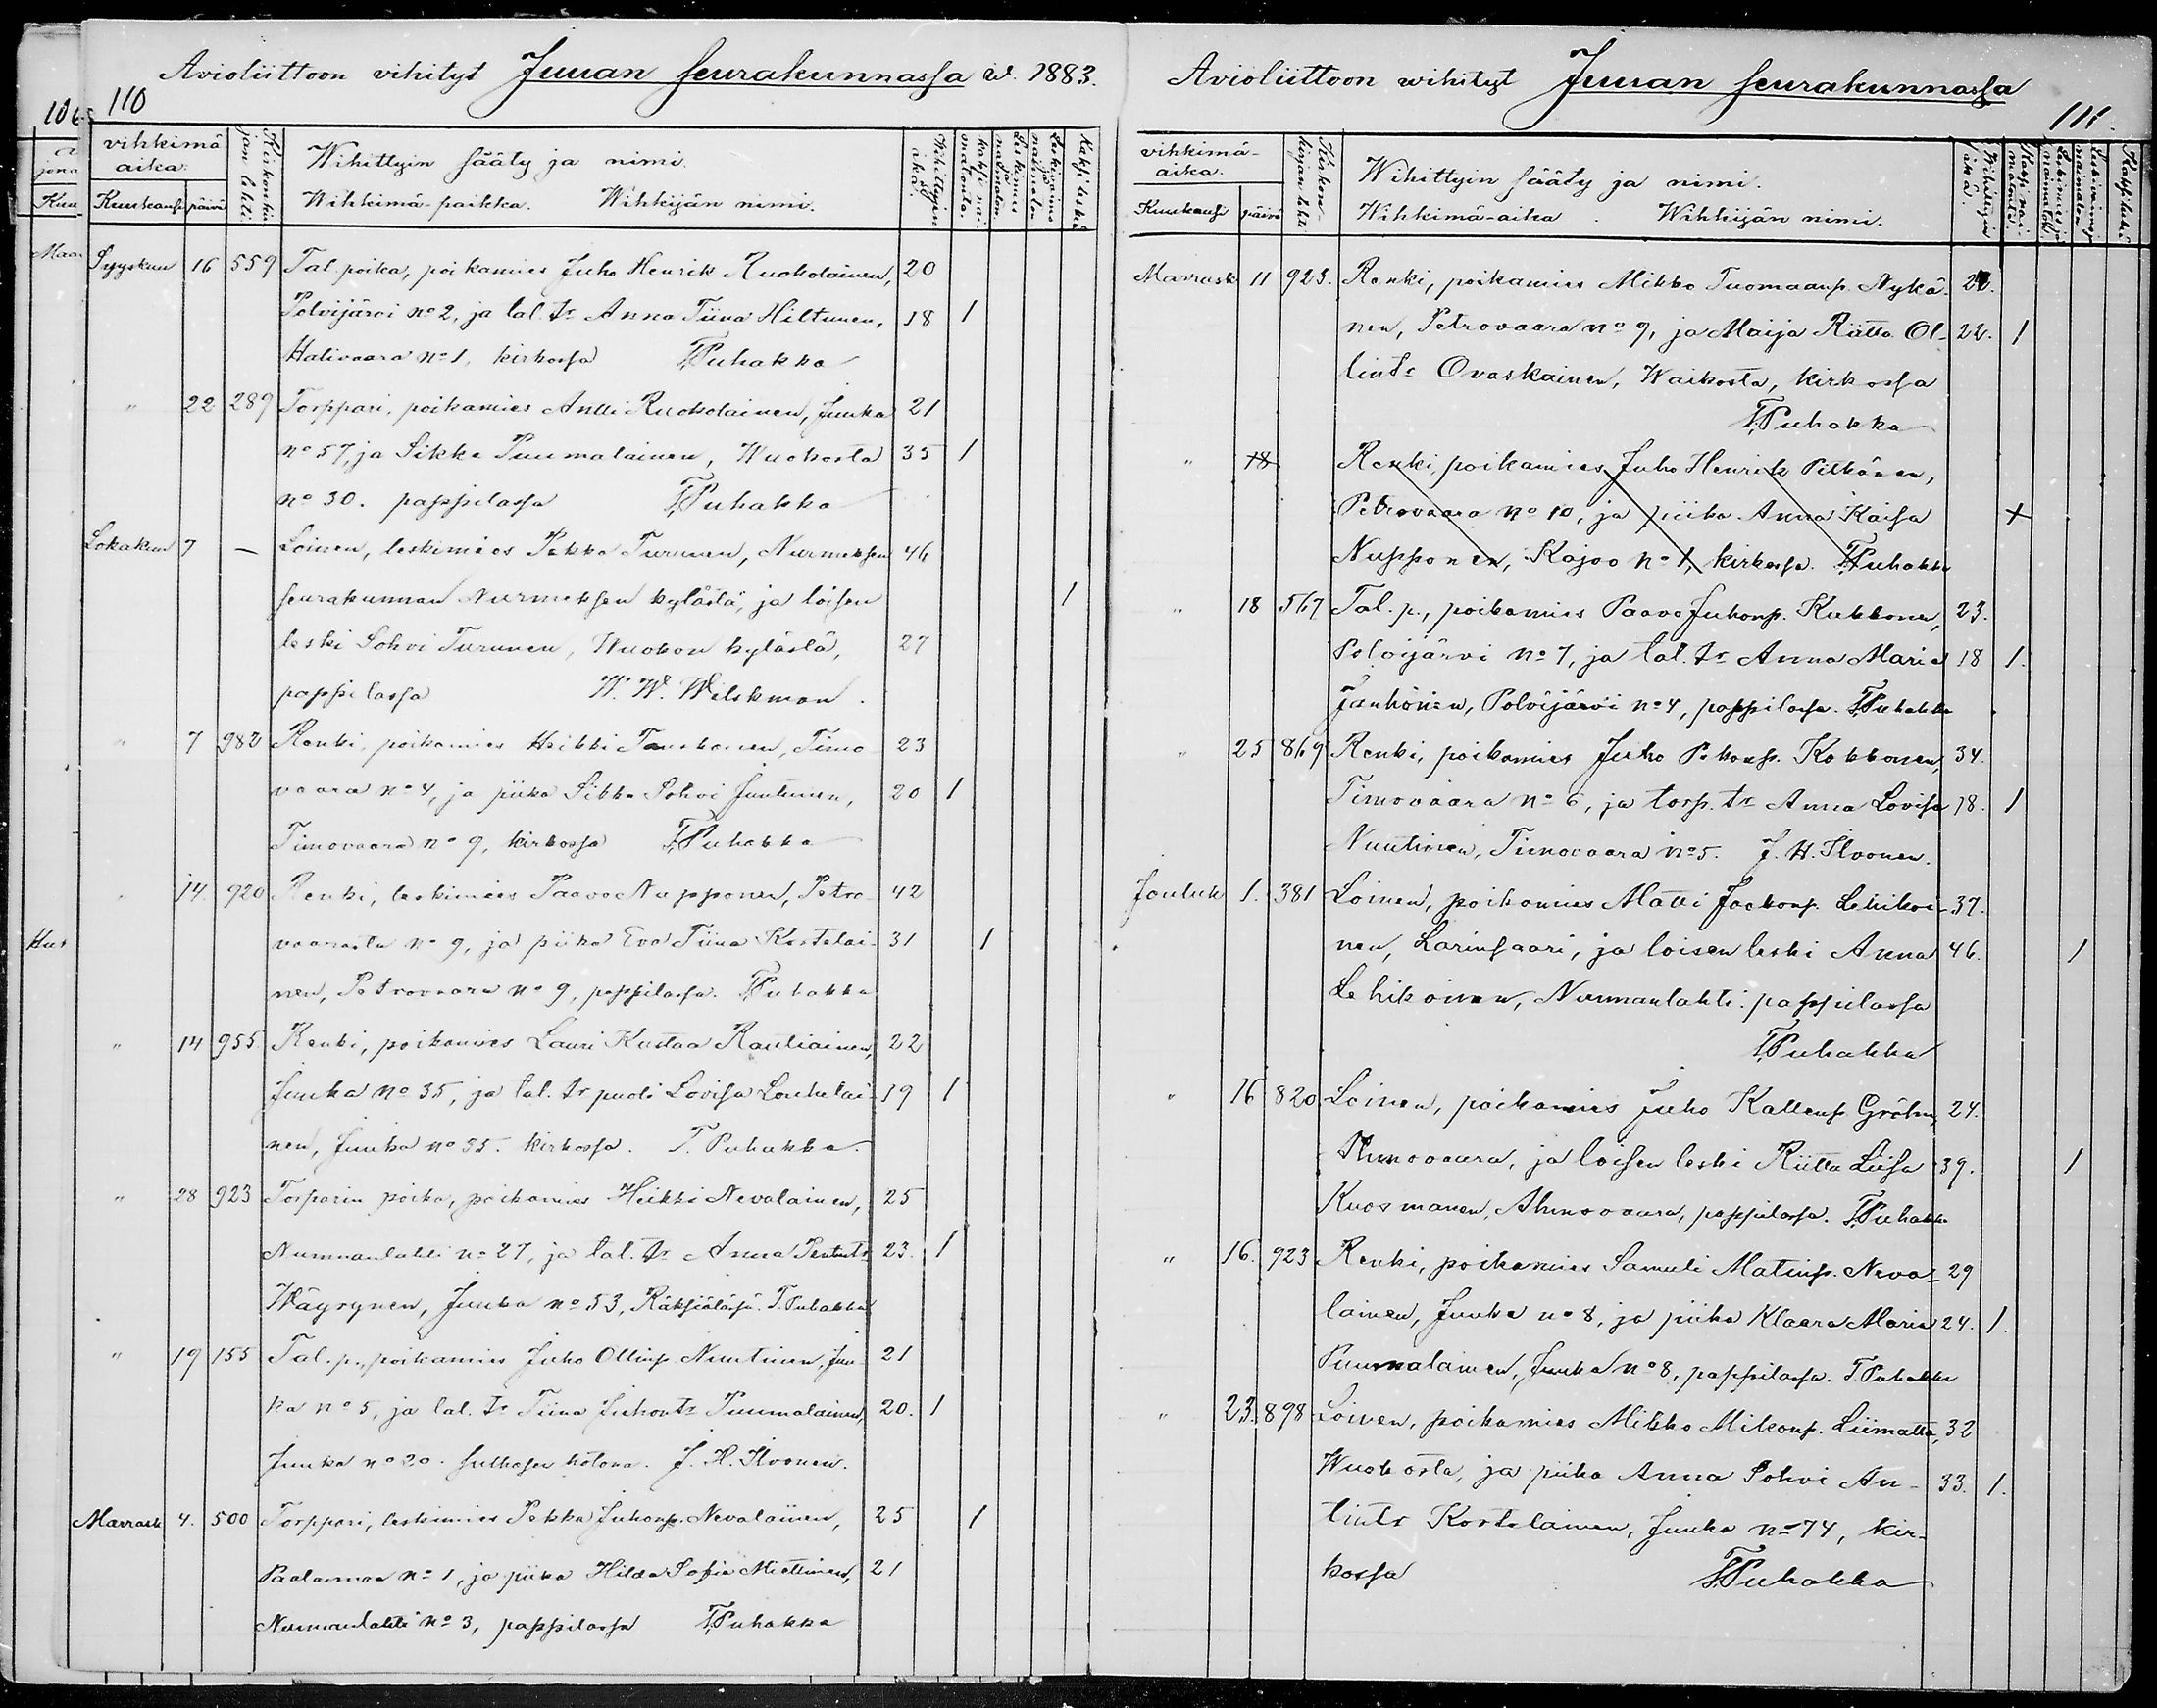 Avioliittoon vihityt Juuan seurakunnassa w. 1883.
106. 110
vihkimä aika. Kirkonkirjan lehti. Wihittyin sääty ja nimi. Wihittyin ikä. Kaksi naimatonta. Leskimies ja naimaton. Leskivaimo ja naimaton. Kaksi leskeä
Kuu Kuukausi päivä Wihkimä-paikka. Wihkijän nimi.
Maa Syyskuu 16 559 Tal. poika, poikamies Juho Henrik Ruokolainen, 20
Polvijärvi no 2, ja tal. tr Anna Tiina Hiltunen, 18 1
Halivaara no 1, kirkossa T. Puhakka
" 22 289 Torppari, poikamies Antti Ruokolainen, Juuka 21
no 57, ja Sikke Puumalainen, Wuokosta 35 1
no 30. pappilassa T. Puhakka
Lokakuu 7 — Loinen, leskimies Pekka Turunen, Nurmeksen 46
seurakunnan Nurmeksen kylästä, ja loisen 1
leski Sohvi Turunen, Wuokon kylästä, 27
pappilassa W. W. Wilskman.
" 7 982 Renki, poikamies Heikki Tanskanen, Timo- 23
vaara no 4, ja piika Sikke Sohvi Juntunen, 20 1
Timovaara no 9, kirkossa T. Puhakka
" 14. 920 Renki, leskimies Paavo Nupponen, Petro- 42
vaarasta no 9, ja piika Eva Tiina Kortelai- 31 1
nen, Petrovaara no 9, pappilassa. T. Puhakka
" 14 955. Renki, poikamies Lauri Kustaa Rautiainen, 22
Juuka no 35, ja tal. tr puoli Lovisa Louhelai- 19 1
nen, Juuka no 35. kirkossa. T. Puhakka.
" 28 923 Torparin poika, poikamies Heikki Nevalainen, 25
Nunnanlahti no 27, ja tal. tr Anna Pentintr 23. 1
Wäyrynen, Juuka no 53, T. Puhakka
" 19 155 Tal. p., poikamies Juho Ollinp. Nuutinen, Juu- 21
ka no 5, ja tal. tr Tiina Juhontr Puumalainen, 20. 1
Juuka no 20. sulhasen kotona. J. H. Ilvonen.
Marrask 4. 500 Torppari, leskimies Pekka Juhonp. Nevalainen, 25 1
Paalasmaa no 1, ja piika Hilda Sofia Miettinen, 21
Nunnanlahti no 3, pappilassa T. Puhakka
Avioliittoon wihityt Juuan seurakunnassa
111.
vihkimä-aika. Kirkonkirjan lehti Wihittyin sääty ja nimi. Wihittyin ikä. Kaksi naimatonta. Leskimies ja naimaton. Leskivaimo ja naimaton. Kaksi leskeä
Kuukausi päivä Wihkimä-aika. Wihkijän nimi.
Marrask 11 923. Renki, poikamies Mikko Tuomaanp. Nykä- 22.
nen, Petrovaara no 9, ja Maija Riitta Ol- 22. 1
lintr Ovaskainen, Waikosta, kirkossa
T. Puhakka
" 18 Renki, poikamies Juho Henrik Pitkänen,
Petrovaara no 10, ja piika Anna Kaisa +
Nupponen, Kajoo no 1, kirkossa. T. Puhakka
" 18 567 Tal. p., poikamies Paavo Juhonp. Kukkonen, 23.
Polvijärvi no 7, ja tal. tr Anna Maria 18 1.
Janhonen, Polvijärvi no 4, pappilassa. T. Puhakka
" 25 869 Renki, poikamies Juho Pekanp. Kokkonen, 34.
Timovaara no 6, ja torp. tr Anna Lovisa 18. 1
Nuutinen, Timovaara no 5. J. H. Ilvonen.
Jouluk 1. 381 Loinen, poikamies Matti Jaakonp. Lehikoi- 37.
nen, Larinsaari, ja loisen leski Anna 46. 1
Lehikoinen, Nunnanlahti. pappilassa
T. Puhakka
" 16 820 Loinen, poikamies Juho Kallenp. Gröhn, 24.
Ahmovaara, ja loisen leski Riitta Liisa 39. 1
Kuosmanen, Ahmovaara, pappilassa. T. Puhakka
" 16. 923 Renki, poikamies Samuli Matinp. Neva- 29
lainen, Juuka no 8, ja piika Klaara Maria 24. 1.
Puumalainen, Juuka no 8, pappilassa. T. Puhakka
" 23. 898 Loinen, poikamies Mikko Mikonp. Liimatta, 32
Wuokosta, ja piika Anna Sohvi An- 33. 1.
tintr Kortelainen, Juuka no 74, kir-
kossa T. Puhakka